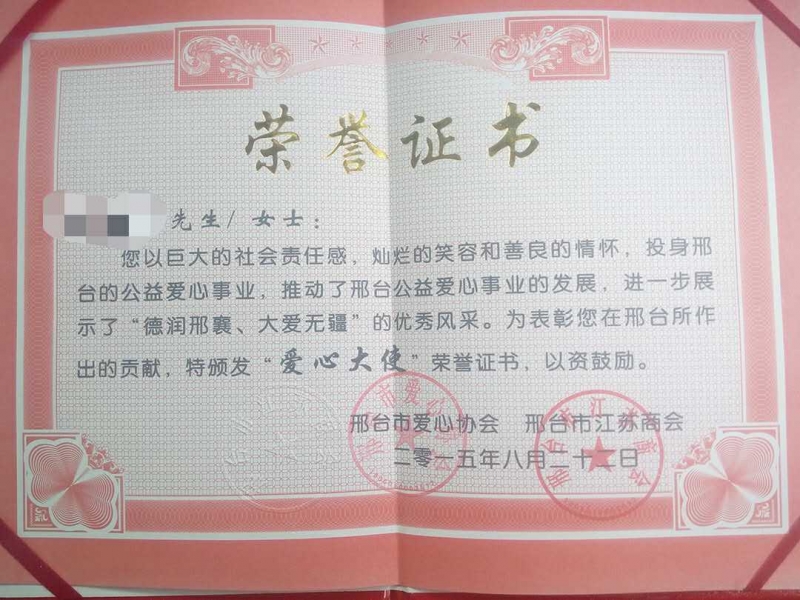 荣誉证书
先生/女士：
您以巨大的社会责任感，灿烂的笑容和善良的情怀，投身邢
台的公益爱心事业，推动了邢台公益爱心事业的发展，进一步展
示了“德润邢襄、大爱无疆”的优秀风采。为表彰您在邢台所作
出的贡献，特颁发“爱心大使”荣誉证书，以资鼓励。
邢台市爱心协会 邢台市江苏商会
二零一五年八月二十二日
邢台市爱心协会
邢台市江苏商会